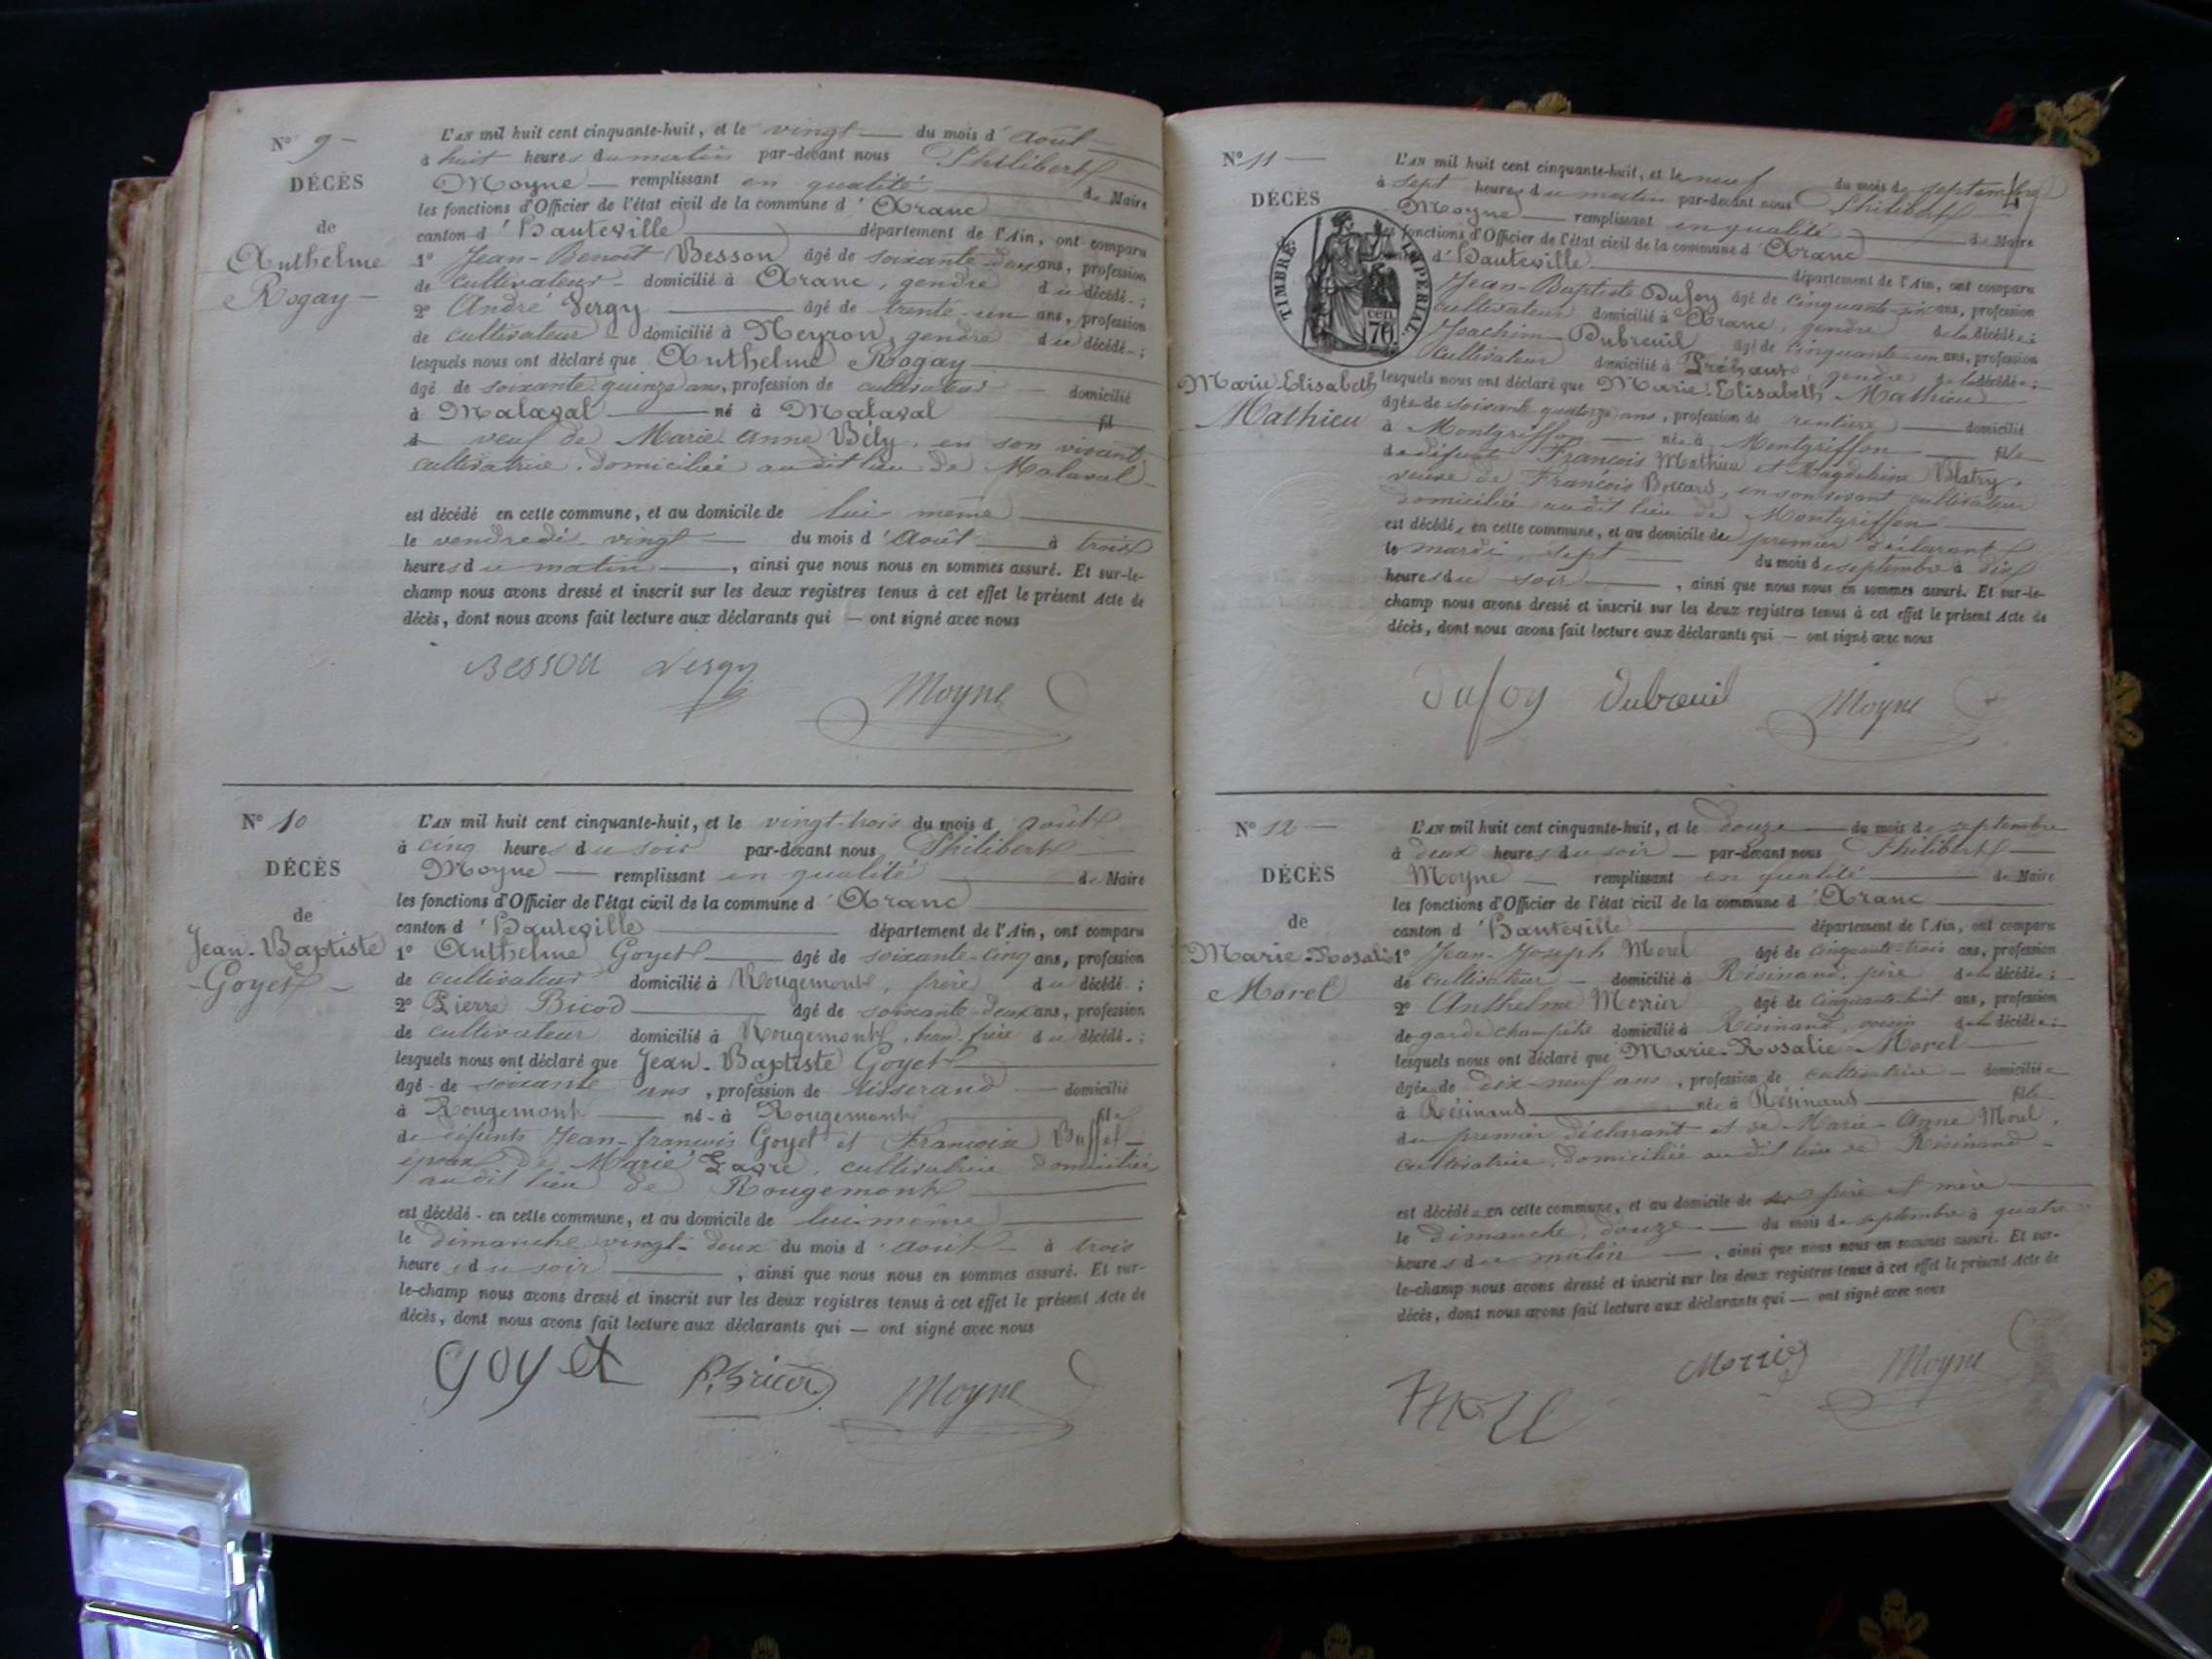 N° 9
DÉCÈS
de
Anthelme
Rogay
L'AN mil huit cent cinquante-huit, et le vingt du mois d'Août
à huit heures du matin par-devant nous Philibert
Moyne remplissant en qualité de Maire
les fonctions d'Officier de l'état civil de la commune d'Aranc
canton d'Hauteville département de l'Ain, ont comparu
1° Jean-Benoit Besson âgé de soixante-deux ans, profession
de cultivateur domicilié à Aranc, gendre du décédé ;
2° André Vergy âgé de trente-un ans, profession
de cultivateur domicilié à Neyron, gendre du décédé ;
lesquels nous ont déclaré que Anthelme Rogay
âgé de soixante-quinze ans, profession de cultivateur domicilié
à Malaval né à Malaval fil
d veuf de Marie-Anne Bély, en son vivant
cultivatrice, domiciliée audit lieu de Malaval
est décédé en cette commune, et au domicile de lui même
le vendredi vingt du mois d'Août à trois
heures du matin, ainsi que nous nous en sommes assuré. Et sur-le-
champ nous avons dressé et inscrit sur les deux registres tenus à cet effet le présent Acte de
décès, dont nous avons fait lecture aux déclarants qui — ont signé avec nous
Besson Vergy Moyne
N° 10
DÉCÈS
de
Jean-Baptiste
Goyet
L'AN mil huit cent cinquante-huit, et le vingt-trois du mois d'août
à cinq heures du soir par-devant nous Philibert
Moyne remplissant en qualité de Maire
les fonctions d'Officier de l'état civil de la commune d'Aranc
canton d'Hauteville département de l'Ain, ont comparu
1° Anthelme Goyet âgé de soixante-cinq ans, profession
de cultivateur domicilié à Rougemont, frère du décédé ;
2° Pierre Bicod âgé de soixante-deux ans, profession
de cultivateur domicilié à Rougemont, beau-frère du décédé ;
lesquels nous ont déclaré que Jean-Baptiste Goyet
âgé de soixante ans, profession de tisserand domicilié
à Rougemont né à Rougemont fils
de défunts Jean-françois Goyet et Françoise Buffet
époux de Marie Savre, cultivatrice domiciliée
audit lieu de Rougemont
est décédé en cette commune, et au domicile de lui-même
le dimanche vingt-deux du mois d'août à trois
heures du soir, ainsi que nous nous en sommes assuré. Et sur-
le-champ nous avons dressé et inscrit sur les deux registres tenus à cet effet le présent Acte de
décès, dont nous avons fait lecture aux déclarants qui — ont signé avec nous
Goyet Moyne
N° 11
DÉCÈS
TIMBRE IMPÉRIAL
cen. 70
Marie-Elisabeth
Mathieu
L'AN mil huit cent cinquante-huit, et le neuf du mois de septembre
à sept heures du matin par-devant nous Philibert
Moyne remplissant en qualité de Maire
les fonctions d'Officier de l'état civil de la commune d'Aranc
d'Hauteville département de l'Ain, ont comparu
Jean-Baptiste Dufoy âgé de cinquante-six ans, profession
cultivateur domicilié à Aranc, gendre de la décédée ;
Joachim Dubreuil âgé de cinquante-un ans, profession
cultivateur domicilié à gendre de la décédée ;
lesquels nous ont déclaré que Marie-Elisabeth Mathieu
âgée de soixante quatorze ans, profession de rentière domicilié
à Montgriffon née à Montgriffon fille
de défunts François Mathieu et Magdeleine Blatry,
veuve de François en son vivant cultivateur
domiciliée audit lieu de Montgriffon
est décédée en cette commune, et au domicile du premier déclarant
le mardi, sept du mois de septembre à dix
heures du soir, ainsi que nous nous en sommes assuré. Et sur-le-
champ nous avons dressé et inscrit sur les deux registres tenus à cet effet le présent Acte de
décès, dont nous avons fait lecture aux déclarants qui — ont signé avec nous
Dufoy Dubreuil Moyne
N° 12
DÉCÈS
de
Marie-Rosalie
Morel
L'AN mil huit cent cinquante-huit, et le douze du mois de septembre
à deux heures du soir par-devant nous Philibert
Moyne remplissant en qualité de Maire
les fonctions d'Officier de l'état civil de la commune d'Aranc
canton d'Hauteville département de l'Ain, ont comparu
1° Jean-Joseph Morel âgé de cinquante-trois ans, profession
de cultivateur domicilié à Résinand, père de la décédée ;
2° Anthelme Morrier âgé de cinquante-huit ans, profession
de garde champêtre domicilié à Résinand, voisin de la décédée ;
lesquels nous ont déclaré que Marie-Rosalie Morel
âgée de dix-neuf ans, profession de cultivatrice domiciliée
à Résinand née à Résinand fille
du premier déclarant et de Marie-Anne Morel,
cultivatrice, domiciliée audit lieu de Résinand
est décédée en cette commune, et au domicile de ses père et mère
le dimanche, douze du mois de septembre à quatre
heures du matin, ainsi que nous nous en sommes assuré. Et sur-
le-champ nous avons dressé et inscrit sur les deux registres tenus à cet effet le présent Acte de
décès, dont nous avons fait lecture aux déclarants qui — ont signé avec nous
Morrier Moyne